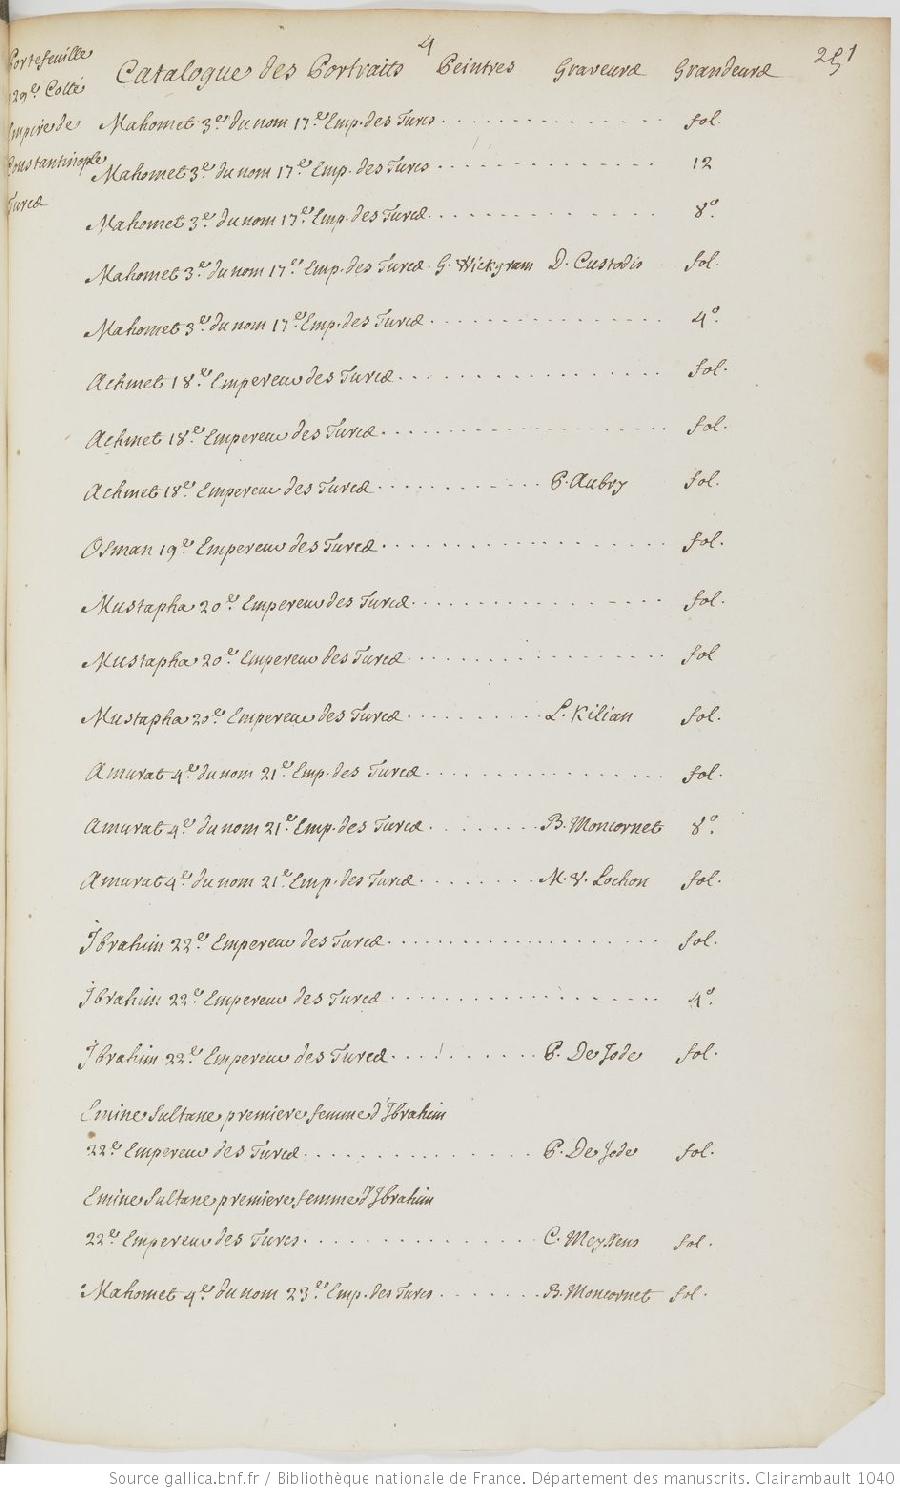 4
251
Portefeuille
129e Cotté
Empire de
Constantinople
Turcs
Catalogue des Portraits Peintres Graveurs Grandeurs
Mahomet 3e du nom 17e Emp. des Turcs . . . . . . . . . . . . . . fol.
Mahomet 3e du nom 17e Emp. des Turcs . . . . . . . . . . . . . . 12
Mahomet 3e du nom 17e Emp. des Turcs . . . . . . . . . . . . . . 8o.
Mahomet 3e du nom 17e Emp. des Turcs G. Wickgram D. Custodis fol.
Mahomet 3e du nom 17e Emp. des Turcs . . . . . . . . . . . . . . 4o.
Achmet 18e Empereur des Turcs . . . . . . . . . . . . . . fol.
Achmet 18e Empereur des Turcs . . . . . . . . . . . . . . fol.
Achmet 18e Empereur des Turcs . . . . . . . . . . P. Aubry fol.
Osman 19e Empereur des Turcs . . . . . . . . . . . . . . fol.
Mustapha 20e Empereur des Turcs . . . . . . . . . . . . . . fol.
Mustapha 20e Empereur des Turcs . . . . . . . . . . . . . . fol
Mustapha 20e Empereur des Turcs . . . . . . . . . L. Kilian fol.
Amurat 4e du nom 21e Emp. des Turcs . . . . . . . . . . . . . . fol.
Amurat 4e du nom 21e Emp. des Turcs . . . . . . . B. Moncornet 8o.
Amurat 4e du nom 21e Emp. des Turcs . . . . . . . M. V. Lochon fol.
Ibrahim 22e Empereur des Turcs . . . . . . . . . . . . . . fol.
Ibrahim 22e Empereur des Turcs . . . . . . . . . . . . . . 4o.
Ibrahim 22e Empereur des Turcs . . . . . . . . . P. De Jode fol.
Emine Sultane premiere femme d'Ibrahim
22e Empereur des Turcs . . . . . . . . . . . . . . P. De Jode fol.
Emine Sultane premiere femme d'Ibrahim
22e Empereur des Turcs . . . . . . . . . . . . . . C. Meyssens fol.
Mahomet 4e du nom 23e Emp. des Turcs . . . . . . . B. Moncornet fol.
Source gallica.bnf.fr / Bibliothèque nationale de France. Département des manuscrits. Clairambault 1040